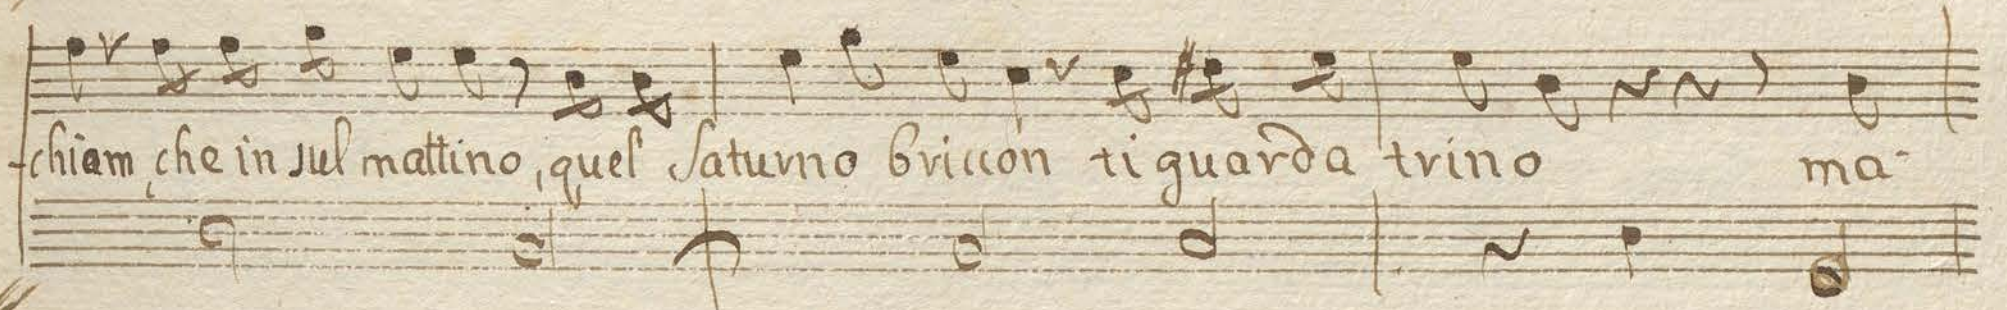 -chiam che in sul mattino, quel Saturno briccon ti guarda trino ma-